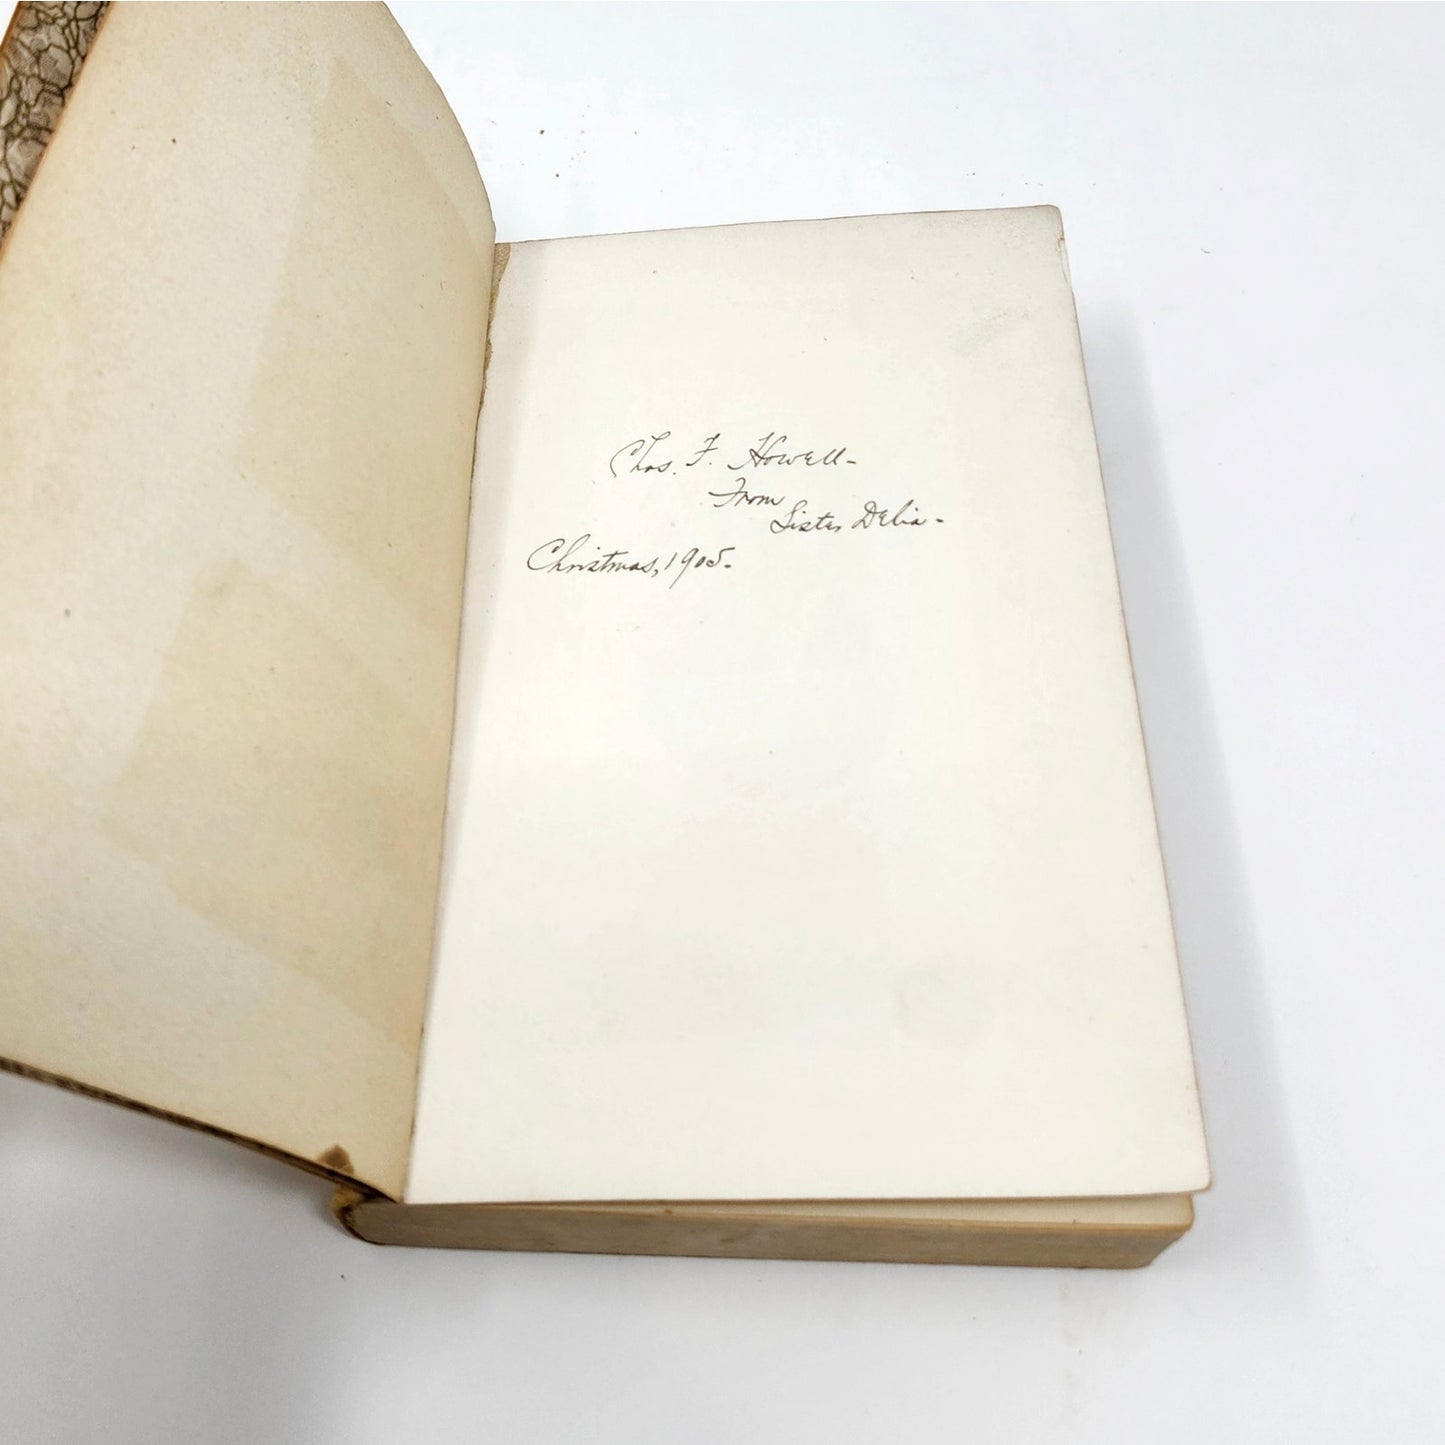 Chas. F. Howell-
From
Sister Delia-
Christmas, 1905.